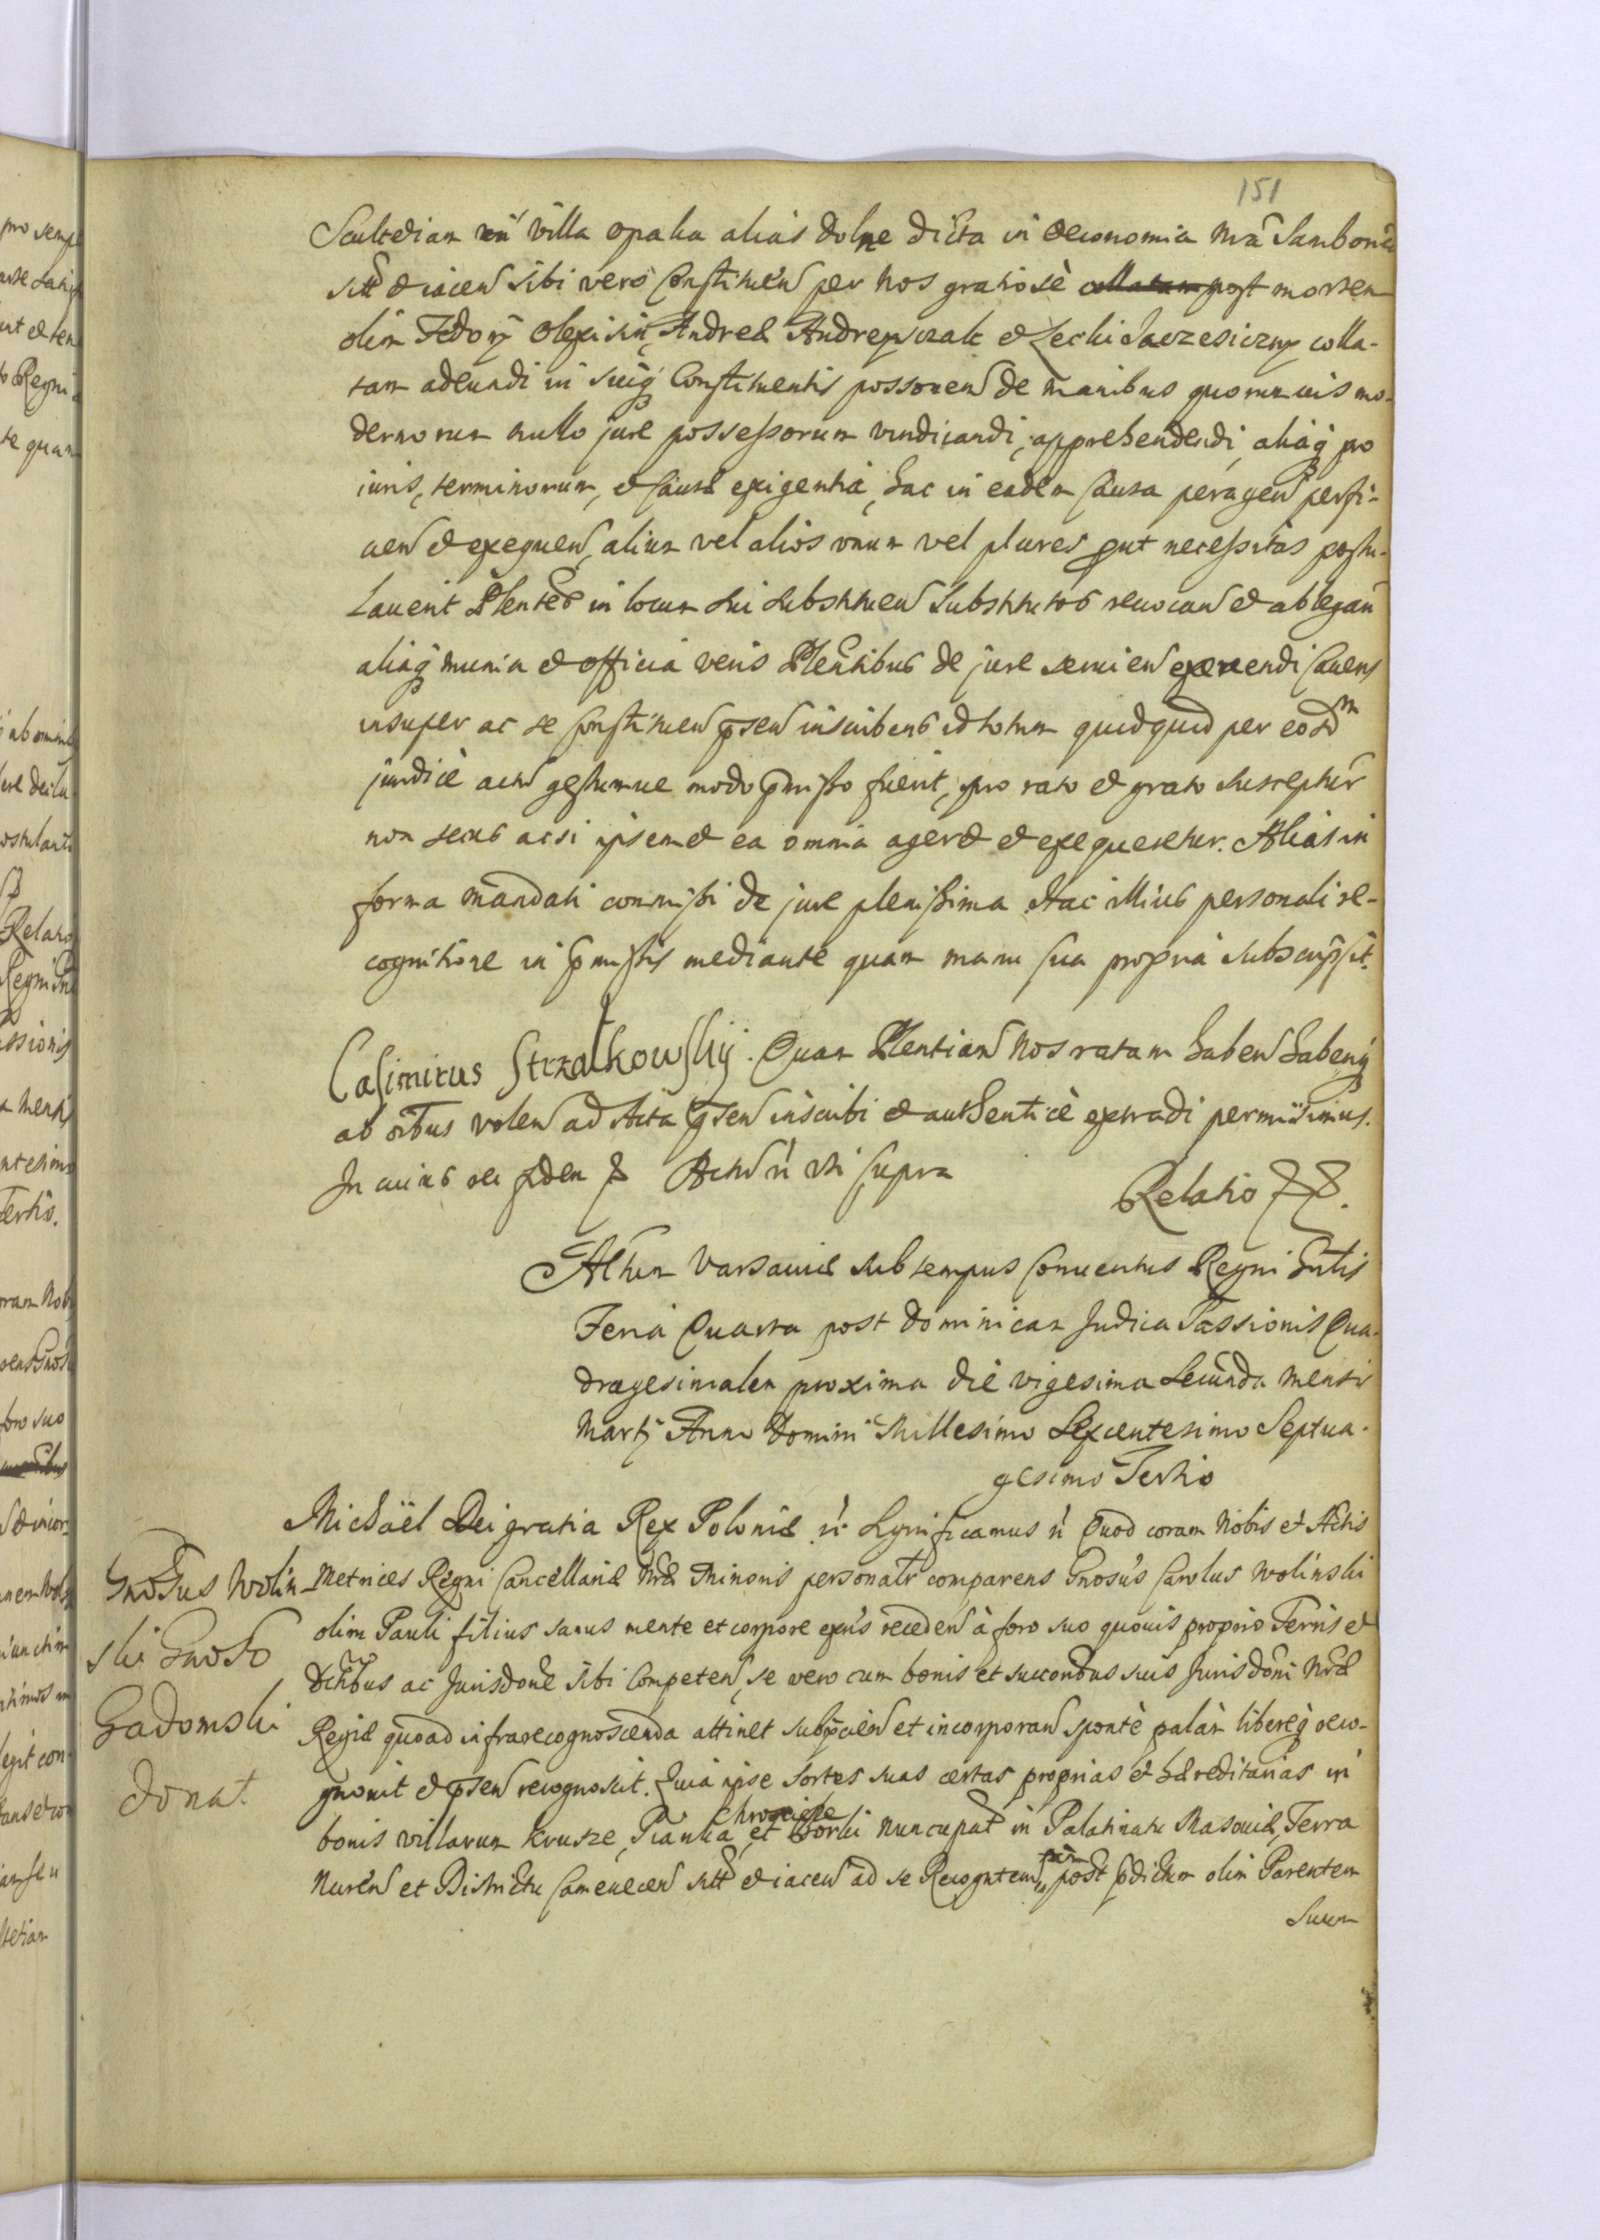 151
Scultetiam in villa opaka alias dolne dicta in Oeconomia Nrã Samboriẽ
sitt et iaceñ sibi vero Constitueñ per Nos gratiose collatam post mortem
olim Fedory Olexisin, Andreæ Andreyszak et Lechi colla-
tam adeundi in suiq Constituentis possoreñ de manibus quorumuis mo-
dernorum nullo jure possessorum vindicandi, apprehendendi, aliaq pro
iuris, terminorum, et Causæ exigentia, hac in eadem Causa perageñ perfi-
cieñ et exequeñ, alium vel alios vnum vel plures put necessitas postu-
lauerit Plentes in locum sui substitueñ substitutos reuocañ et ablegañ
aliaq munia et officia veris Plentibus de jure seruieñ exercendi Cauens
insuper ac se Constitueñ pseñ inscribens id totum quidquid per eosdm
juridicè actũ gestumue modo pmisso fuerit, pro rato et grato suscepturũ
non secus acsi ipsemet ea omnia ageret et exequeretur. Alias in
forma mandati commissi de jure plenissima. Hac illius personali re-
cognitione in pmissis mediante quam manu sua propria subscripsit.
Casimirus Strzałkowskij. Quam Plentiam Nos ratam habeñ haberiq
ab oibus voleñ ad Acta pseñ inscribi et authenticè extradi permisimus.
In cuius rei fidem Actũ vti supra
Relatio
Actum Varsauiæ sub tempus Conuentus Regni Gntis
Feria Quarta post Dominicam Judica Passionis Qua-
dragesimalem proxima die vigesima Secunda Mensis
Martij Anno Domini Millesimo Sexcentesimo Septua-
gesimo Tertio
Michaël Dei gratia Rex Poloniæ Significamus Quod coram Nobis et Actis
Gnosus Wolin-
ski Gnoso
Gadomski
donat.
Metrices Regni Cancellariæ Nræ Minoris personalr comparens Gnosus Carolus Wolinski
olim Pauli filius sanus mente et corpore exñs recedeñ à foro suo quouis proprio Terris et
Dctibus ac Jurisdone sibi Competeñ, se vero cum bonis et succoribus suis Jurisdoni Nræ
Regiæ quoad infrarecognoscenda attinet subijcieñ et incorporañ sponte palàm libereq reco-
gnouit et pseñ recognoscit. Quia ipse sortes suas certas proprias et hæreditarias in
bonis villarum Krusze, Pianka, Chrościele et Borki nuncupat in Palatinatu Masouiæ, Terra
Nureñ et Districtu Cameneceñ sitt et iaceñ ad se Recognteñ post pdictum olim Parentem
Suum